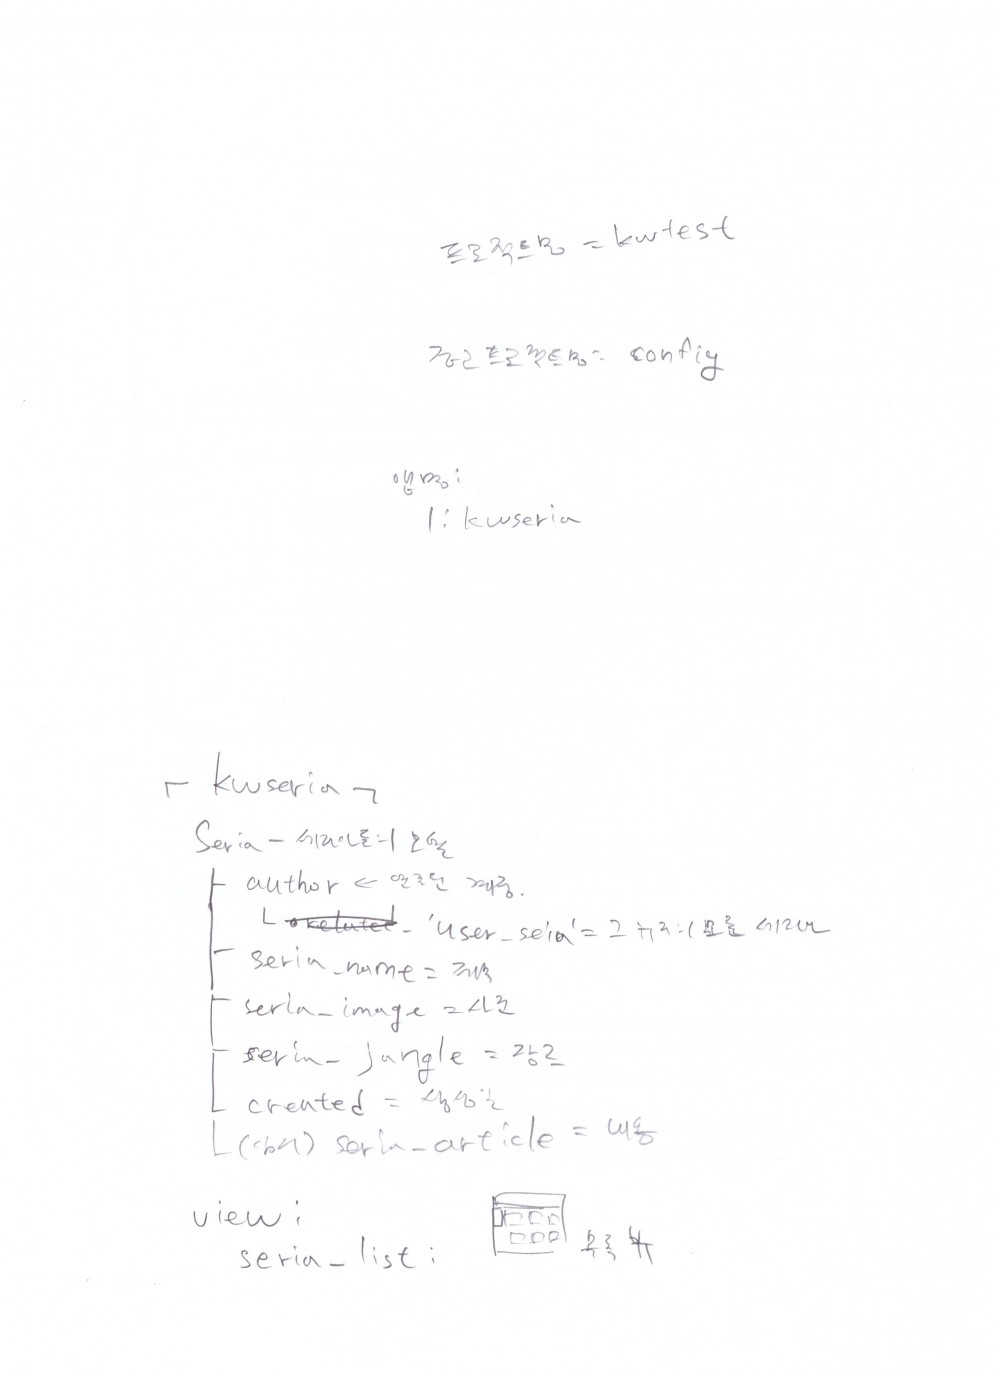 프로젝트명 = kwtest
프로젝트명 = config
앱명:
1: kwseria
kwseria
Seria -
author ← 연결된 계정.
'user_seria' = 그 유저의 모든 세리아
seria_name = 제목
seria_image = 사진
seria_jangle = 장르
created = 생성일
seria_article = 내용
view:
seria_list:
목록 뷰